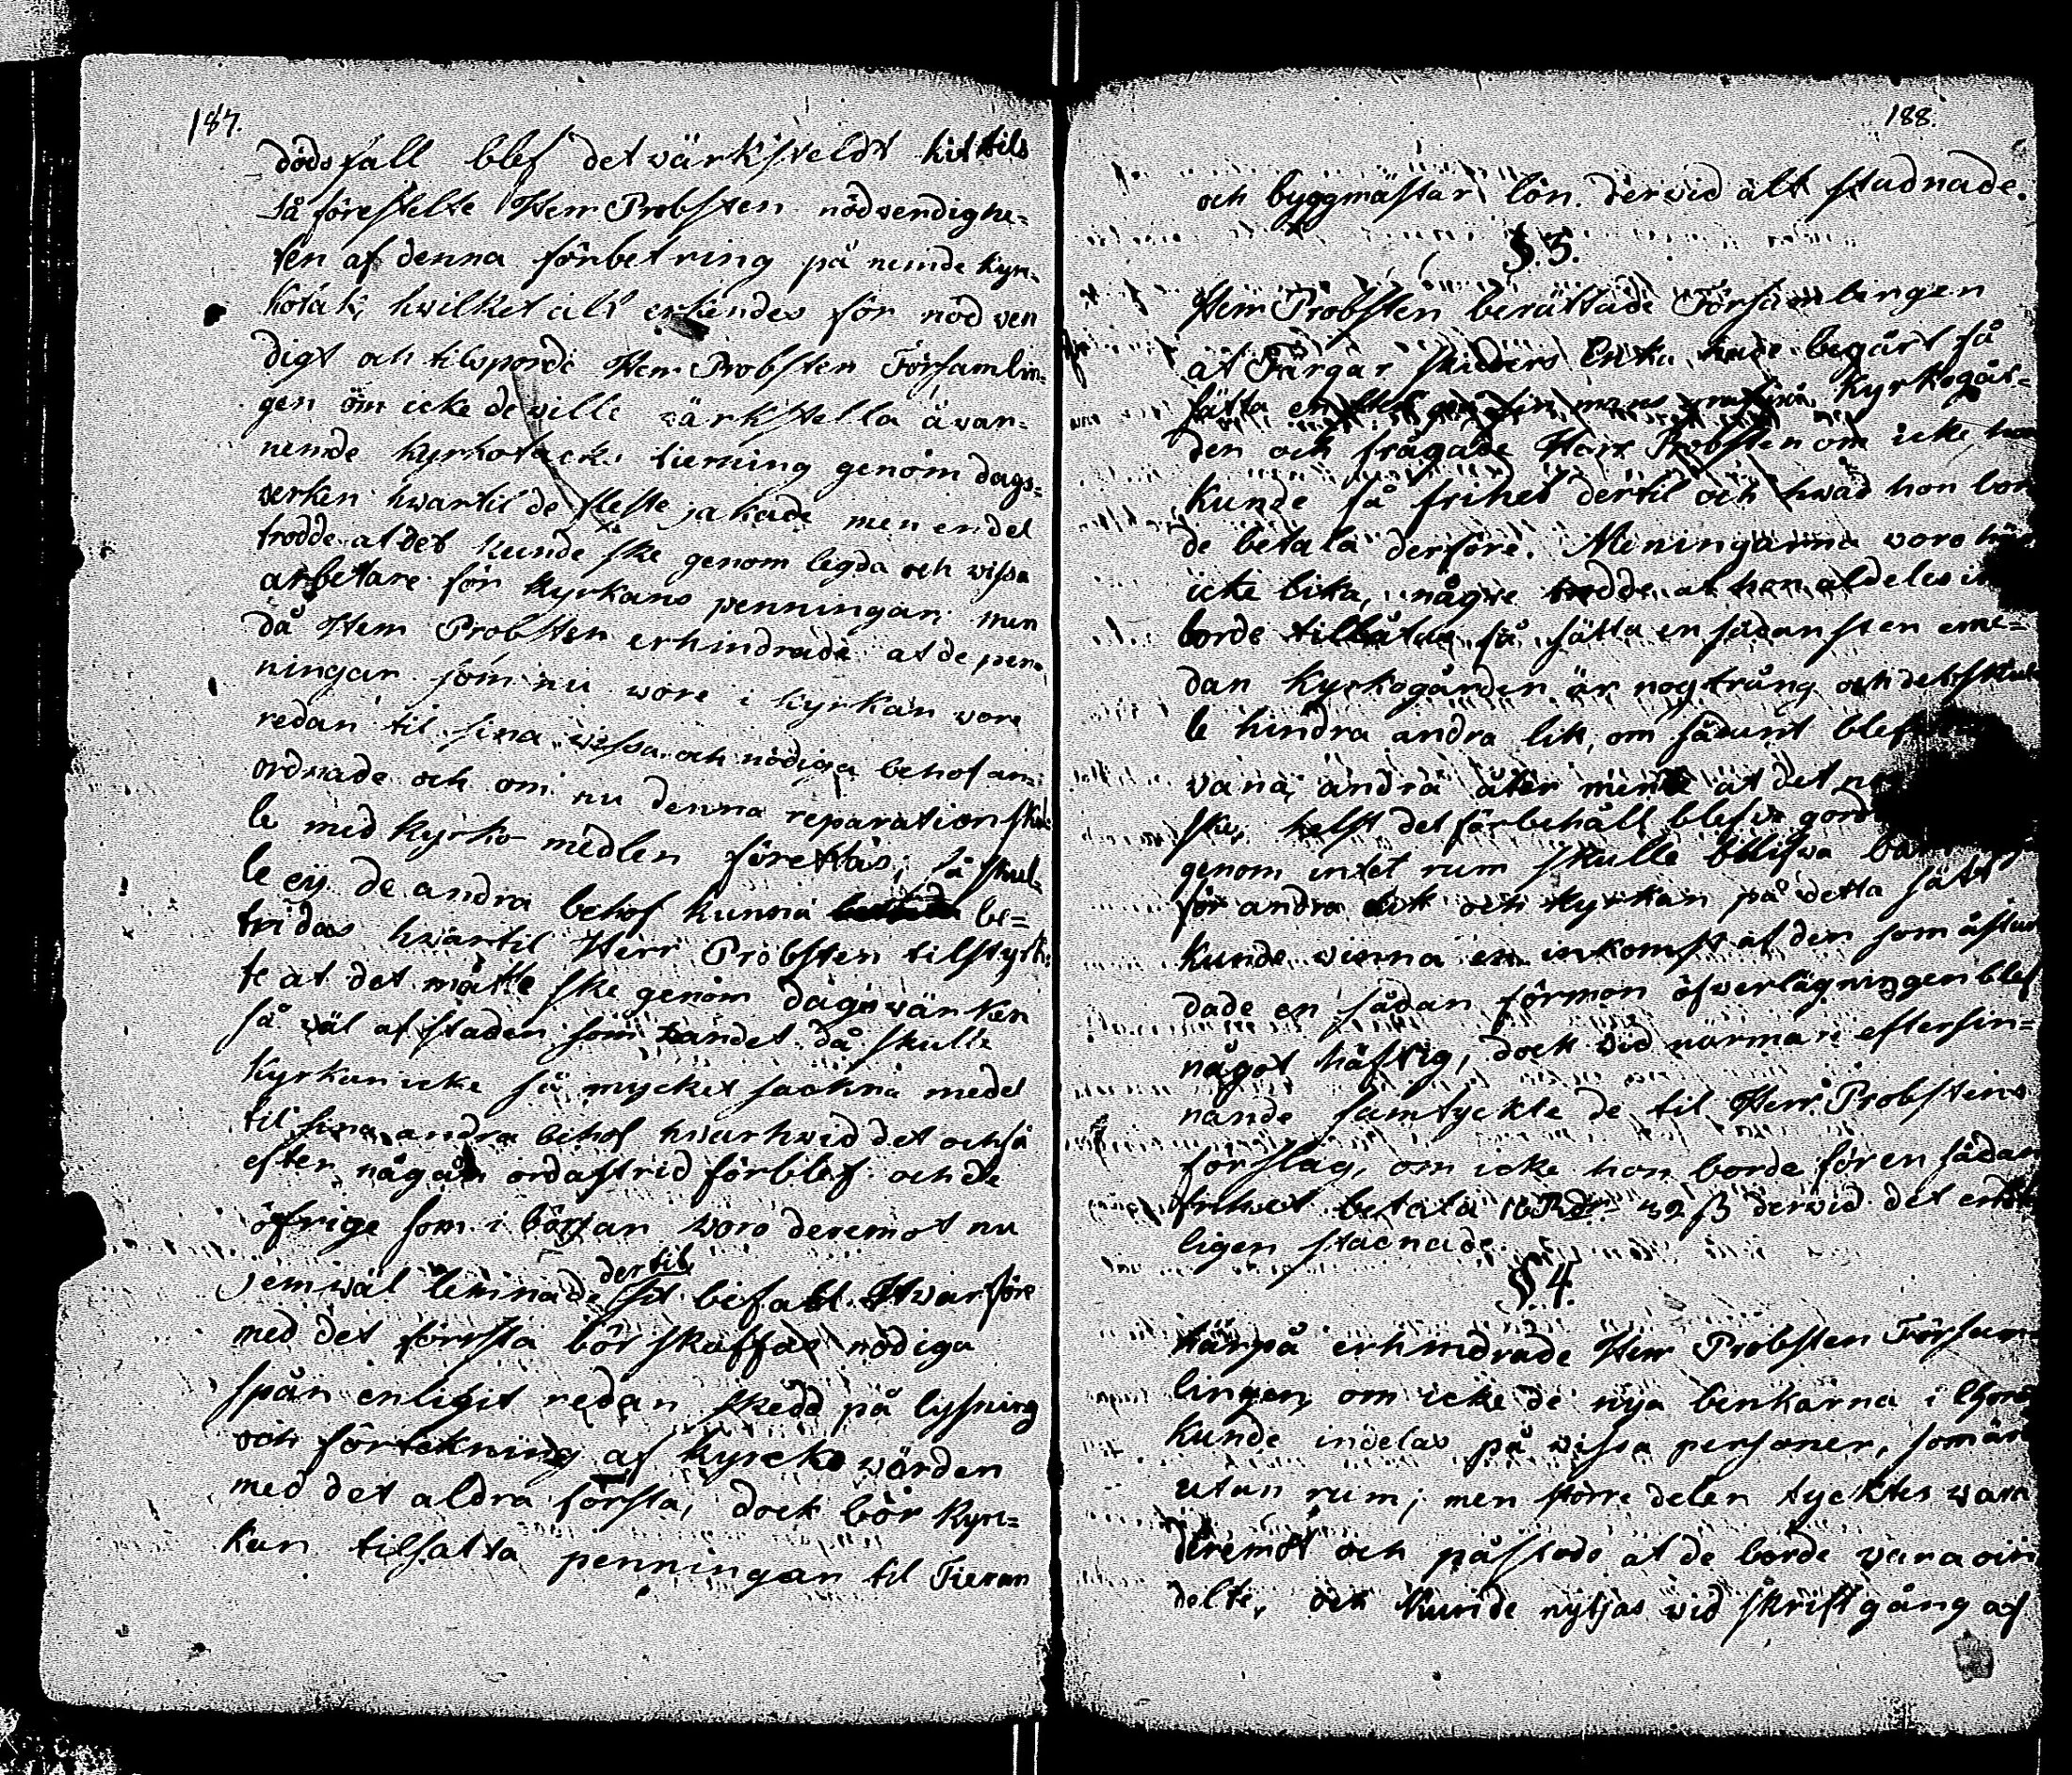 187.
dödsfall blef det värksteldt hittils
så förestelte Herr Probsten nödvendighe-
ten af denna förbetring på nemde Kyr-
kotak, hwilket alt erkendes för nödven
digt och tilsporde Herr Probsten Församlin-
gen om icke de wille värkstella åvan-
nemde kyrkotacks tierning genom dags-
verken hwartil de fleste jakade men en del
trodde at det kunde ske genom legda och wissa
arbetare för kyrkans penningar men
då Herr Probsten erhindrade at de pen-
ningar som nu wore i kyrkan wore
redan til sina wissa och nödiga behof an-
ordnade och om nu denna reparation skul-
le med Kyrko medlen förettas, så skul-
le ey de andra behof kunna be-
tridas hwartil Herr Probsten tilstyrk-
te at det måtte ske genom dagsvärken
så väl af staden som Landet då skulle
Kyrkan icke så mycket sackna medel
til sina andra behof hwarhwid det också
efter någån ordastrid förblef och de
öfrige som i börjar woro deremot nu
jemwäl lemnade dertil sit bifall. Hwarföre
med det första bör skaffas nödiga
spån enligit redan skedd på lysning
och förtekning af kyrcko wärden
med det aldra första, dock bör Kyr-
kan tilsatta penningar til Tieran
188.
och byggmästar lön. derwid alt stadnade.
§. 3.
Herr Probsten berättade Församlingen
at Färgar Enka hade begärt få
sätta en sin mans Kyrkogår-
den och frågade Herr Probsten om icke hon
kunde få frihet dertil och hwad hon bor
de betala derföre. Meningarna woro här
icke lika, någre trodde at hon aldeles
borde tillåtas få sätta en sådan sten eme-
dan kyrkogården är nog trång och det skul
le hindra andra lik, om sådant blef
vana, andra åter mente at det
ske, helst det förbehåll blefve gord
genom intet rum skulle blifwa
för andra lik och kyrkan på detta sätt
kunde winna en inkomst af den som åstun
dade en sådan förmon öfverlägningen blef
något häftig, dock wid närmare eftersin-
nande samtyckte de til Herr Probstens
förslag, om icke hon borde för en sådan
frihet betala 16 Rdr 32 ß derwid det ende
ligen stadnade.
§. 4.
Härpå erhindrade Herr Probsten Försam-
lingen, om icke de nya benkarna i Choret
kunde indelas på wissa personer, som äro
utan rum; men större delen tycktes wara
deremot och påstodo at de borde vara oin
delte, och kunde nytjas wid skriftgång af